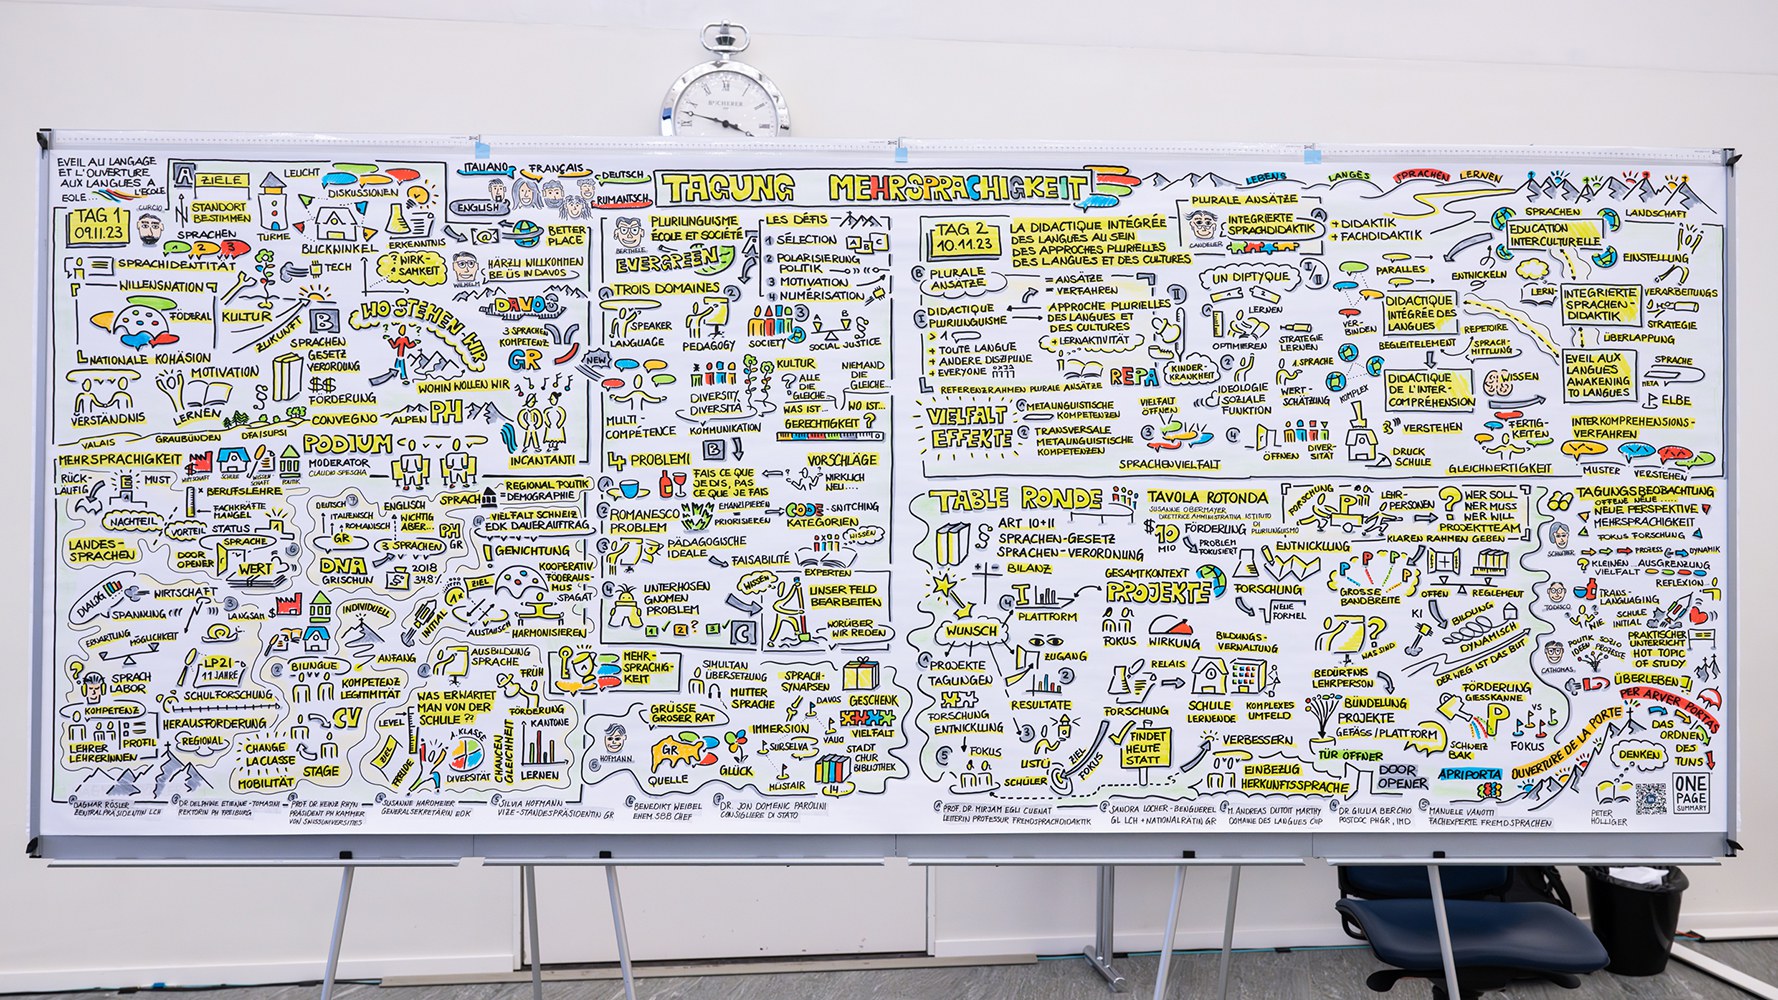 EVEIL AU LANGAGE
ET L'OUVERTURE
AUX LANGUES À
L'ECOLE
EOLE
TAG 1
09.11.23
CURCIO
A ZIELE
STANDORT
BESTIMMEN
SPRACHEN
1 2 3
LEUCHT
TÜRME
DISKUSSIONEN
BLICKWINKEL
ERKENNTNIS
BETTER
PLACE
SPRACHIDENTITÄT
WILLENSNATION
FÖDERAL
NATIONALE KOHÄSION
KULTUR
ZUKUNFT
TECH
? WIRK-
SAMKEIT
WILHELM
HÄRZLI WILLKOMMEN
BE ÜS IN DAVOS
DAVOS
WO STEHEN WIR
B
SPRACHEN
GESETZ
VERORDNUNG
$$
FÖRDERUNG
3 SPRACHEN
KOMPETENZ
GR
WOHIN WOLLEN WIR
VERSTÄNDNIS
MOTIVATION
LERNEN
CONVEGNO
ALPEN PH
VALAIS
GRAUBÜNDEN
DFA/SUPSI
INCANTANTI
ITALIANO
FRANÇAIS
DEUTSCH
RUMANTSCH
ENGLISH
TAGUNG MEHRSPRACHIGKEIT
LEBENS LANGES SPRACHEN LERNEN
MEHRSPRACHIGKEIT
WIRTSCHAFT
SCHULE
WISSEN-
SCHAFT
POLITIK
PODIUM
MODERATOR
CLAUDIO SPESCHA
RÜCK-
LÄUFIG
MUST
BERUFSLEHRE
FACHKRÄFTE
MANGEL
NACHTEIL
VORTEIL
STATUS
SPRACHE
LANDES-
SPRACHEN
DOOR
OPENER
WERT
DEUTSCH
ITALIENISCH
ROMANISCH
GR
ENGLISCH
WICHTIG
ABER...
3 SPRACHEN
PH
GR
DNA
GRISCHUN
2018
34,8%
SPRACH
REGIONAL POLITIK
= DEMOGRAPHIE
VIELFALT SCHWEIZ
EDK DAUERAUFTRAG
GEWICHTUNG
KOOPERATIV
FÖDERALIS-
MUS
SPAGAT
HARMONISIEREN
ZIEL
AUSTAUSCH
INITIAL
DIALOG
WIRTSCHAFT
SPANNUNG
ERWARTUNG
MÖGLICHKEIT
LANGSAM
INDIVIDUELL
ANFANG
? SPRACH
LABOR
KOMPETENZ
LEHRER
LEHRERINNEN
PROFIL
LP21
11 JAHRE
SCHULFORSCHUNG
HERAUSFORDERUNG
REGIONAL
BILINGUE
KOMPETENZ
LEGITIMITÄT
CV
CHANGE
LA CLASSE
MOBILITÄT
STAGE
AUSBILDUNG
SPRACHE
FRÜH
WAS ERWARTET
MAN VON DER
SCHULE ??
LEVEL
ZIEL
FREUDE
A. KLASSE
DIVERSITÄT
CHANCEN
GLEICHHEIT
FÖRDERUNG
KANTONE
LERNEN
DAGMAR RÖSLER
ZENTRALPRÄSIDENTIN LCH
DR DELPHINE ETIENNE-TOMASINI
REKTORIN PH FREIBURG
PROF DR HEINZ RHYN
PRÄSIDENT PH KAMMER
VON SWISSUNIVERSITIES
SUSANNE HARDMEIER
GENERALSEKRETÄRIN EDK
SILVIA HOFMANN
VIZE-STANDESPRÄSIDENTIN GR
BENEDIKT WEIBEL
EHEM SBB CHEF
DR. JON DOMENIC PAROLINI
CONSIGLIERE DI STATO
PLURILINGUISME
ÉCOLE ET SOCIÉTÉ
BERTHELE
EVERGREEN
TROIS DOMAINES
SPEAKER
LANGUAGE
PEDAGOGY
SOCIETY
SOCIAL JUSTICE
LES DÉFIS
1 SÉLECTION
A B C
2 POLARISIERUNG
POLITIK
3 MOTIVATION
4 NUMÉRISATION
NEW
MULTI-
COMPÉTENCE
DIVERSITY
DIVERSITÀ
KOMMUNIKATION
KULTUR
? ALLE
DIE
GLEICHE
NIEMAND
DIE
GLEICHE...
WAS IST...
WO IST...
GERECHTIGKEIT ?
B
4 PROBLEMI
VORSCHLÄGE
FAIS CE QUE
JE DIS, PAS
CE QUE JE FAIS
WIRKLICH
NEU....
ROMANESCO
PROBLEM
EMANZIPIEREN
PRIORISIEREN
CODE-SWITCHING
KATEGORIEN
WISSEN
PÄDAGOGISCHE
IDEALE
FAISABILITÉ
UNTERHOSEN
GNOMEN
PROBLEM
1 2 ? 3
C
WISSEN
EXPERTEN
UNSER FELD
BEARBEITEN
WORÜBER
WIR REDEN
MEHR-
SPRACHIG-
KEIT
SIMULTAN
ÜBERSETZUNG
MUTTER
SPRACHE
SPRACH-
SYNAPSEN
GESCHENK
VIELFALT
GRÜSSE
GROSSER RAT
HOFMANN
GR
QUELLE
GLÜCK
IMMERSION
SURSELVA
DAVOS
MÜSTAIR
STADT
CHUR
BIBLIOTHEK
14...
TAG 2
10.11.23
LA DIDACTIQUE INTÉGRÉE
DES LANGUES AU SEIN
DES APPROCHES PLURIELLES
DES LANGUES ET DES CULTURES
PLURALE ANSÄTZE
CANDELIER
INTEGRIERTE
SPRACHDIDAKTIK
+ DIDAKTIK
+ FACHDIDAKTIK
PLURALE
ANSÄTZE
= ANSÄTZE
= VERFAHREN
DIDACTIQUE
PLURILINGUISME
> 1
+ TOUTE LANGUE
+ ANDERE DISZIPLINE
+ EVERYONE
APPROCHE PLURIELLES
DES LANGUES ET
DES CULTURES
+ LERNAKTIVITÄT
REFERENZRAHMEN PLURALE ANSÄTZE
REPA
KINDER-
KRANKHEIT
UN DIPTYQUE
LERNEN
OPTIMIEREN
STRATEGIE
LERNEN
IDEOLOGIE
SOZIALE
FUNKTION
1. SPRACHE
WERT-
SCHÄTZUNG
VIELFALT
EFFEKTE
METALINGUISTISCHE
KOMPETENZEN
TRANSVERSALE
METALINGUISTISCHE
KOMPETENZEN
VIELFALT
ÖFFNEN
SPRACHENVIELFALT
ÖFFNEN
DIVER-
SITÄT
DRUCK
SCHULE
KOMPLEX
PARALLES
VER-
BINDEN
DIDACTIQUE
INTÉGRÉE DES
LANGUES
BEGLEITELEMENT
DIDACTIQUE
DE L'INTER-
COMPRÉHENSION
VERSTEHEN
GLEICHWERTIGKEIT
SPRACHEN
EDUCATION
INTERCULTURELLE
LANDSCHAFT
EINSTELLUNG
ENTWICKELN
LERN-
INTEGRIERTE
SPRACHEN-
DIDAKTIK
VERARBEITUNGS
STRATEGIE
ÜBERLAPPUNG
REPETOIRE
SPRACH-
MITTLUNG
EVEIL AUX
LANGUES
AWAKENING
TO LANGUES
SPRACHE
META
ELBE
WISSEN
FERTIG-
KEITEN
INTERKOMPREHENSIONS-
VERFAHREN
MUSTER
VERSTEHEN
TABLE RONDE
TAVOLA ROTONDA
SUSANNE OBERMAYER
DIRETTRICE AMMINISTRATIVA ISTITUTO
DI PLURILINGUISMO
§ ART 10+11
§ SPRACHEN-GESETZ
§ SPRACHEN-VERORDNUNG
BILANZ
$ 10
MIO
FÖRDERUNG
PROBLEM
FOKUSIERT
ENTWICKLUNG
GESAMTKONTEXT
PROJEKTE
FORSCHUNG
NEUE
FORMEL
PLATTFORM
FOKUS
WIRKUNG
BILDUNGS-
VERWALTUNG
WUNSCH
PROJEKTE
TAGUNGEN
FORSCHUNG
ENTWICKLUNG
FOKUS
ZUGANG
RESULTATE
SCHÜLER
ZIEL
FOKUS
RELAIS
FORSCHUNG
FINDET
HEUTE
STATT
SCHULE
LERNENDE
KOMPLEXES
UMFELD
VERBESSERN
EINBEZUG
HERKUNFTSSPRACHE
FORSCHUNG
P
LEHR-
PERSONEN
? WER SOLL
WER MUSS
WER WILL
PROJEKTTEAM
KLAREN RAHMEN GEBEN
GROSSE
BANDBREITE
OFFEN
REGLEMENT
KI
BILDUNG
DYNAMISCH
DER WEG IST DAS BUT
WAS SIND
BEDÜRFNIS
LEHRPERSON
BÜNDELUNG
PROJEKTE
GEFÄSS/PLATTFORM
FÖRDERUNG
GIESSKANNE
P
VS
SCHWEIZ
BAK
FOKUS
TÜR ÖFFNER
DOOR
OPENER
APRIPORTA
OUVERTURE DE LA PORTE
PER ARVER PORTAS
TAGUNGSBEOBACHTUNG
OFFENE NEUE ......
NEUE PERSPEKTIVE
MEHRSPRACHIGKEIT
FOKUS FORSCHUNG
PROZESS
DYNAMIK
KLEINEN
AUSGRENZUNG
VIELFALT
REFLEXION
TODISCO
TRANS-
LANGUAGING
SCHULE
WIE
INITIAL
POLITIK
IDEEN
SOZIO
PROZESSE
PRAKTISCHER
UNTERRICHT
HOT TOPIC
OF STUDY
CATHOMAS
ÜBERLEBEN
DAS
ORDNEN
DES
TUNS
DENKEN
PETER
HOLLIGER
ONE
PAGE
SUMMARY
PROF. DR. MIRJAM EGLI CUENAT
LEITERIN PROFESSUR FREMDSPRACHDIDAKTIK
SANDRA LOCHER-BENGUEREL
GL LCH + NATIONALRÄTIN GR
M. ANDREAS DUTOIT MARTHY
DOMAINE DES LANGUES CIIP
DR GIULIA BERCHIO
POSTDOC PHGR, IMD
MANUELE VANOTTI
FACHEXPERTE FREMDSPRACHEN
BUCHERER